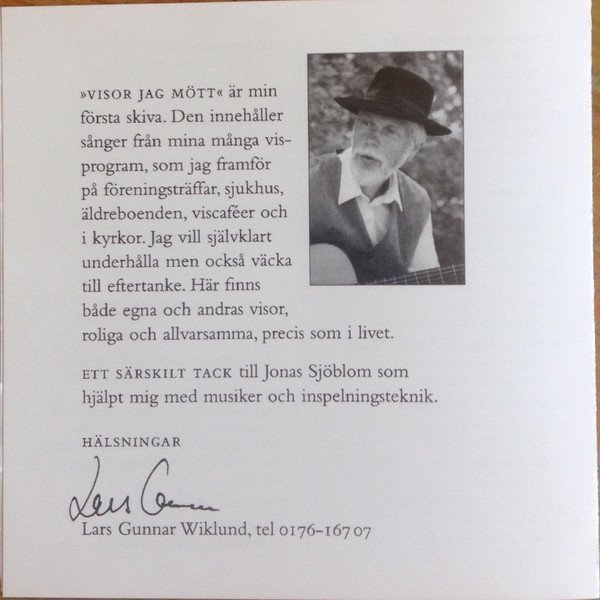 »VISOR JAG MÖTT« är min
första skiva. Den innehåller
sånger från mina många vis-
program, som jag framför
på föreningsträffar, sjukhus,
äldreboenden, viscaféer och
i kyrkor. Jag vill självklart
underhålla men också väcka
till eftertanke. Här finns
både egna och andras visor,
roliga och allvarsamma, precis som i livet.
ETT SÄRSKILT TACK till Jonas Sjöblom som
hjälpt mig med musiker och inspelningsteknik.
HÄLSNINGAR
Lars Gunnar
Lars Gunnar Wiklund, tel 0176-167 07